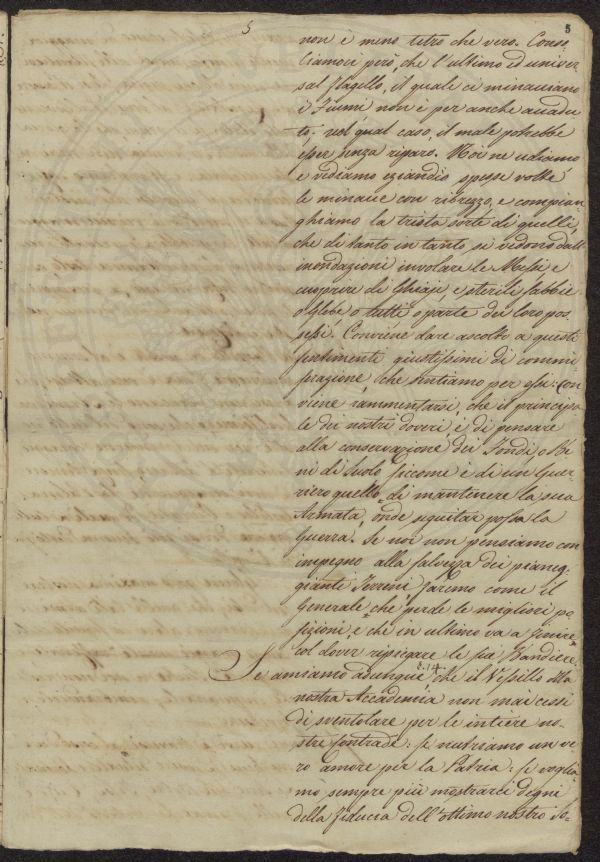 5
5
non è meno tetro che vero. Conso-
liamoci però, che l'ultimo ed univer-
sal flagello, il quale ci minacciano
i Fiumi non è per anche accadu-
to; nel qual caso, il male potrebbe
esser senza riparo. Noi ne udiamo
e vidiamo eziandio spesse volte
le minacce con ribrezzo, e compian-
ghiamo la trista sorte di quelli,
che di tanto in tanto, si vedono dall'
inondazioni involare le Messi e
cuoprire di Ghiaje, e sterili sabbie
o Glebe o tutti o parte dei loro pos-
sessi. Conviene dare ascolto a questi
sentimenti giustissimi di commi-
serazione, che sentiamo per essi: con-
viene rammentarsi, che il principa-
le dei nostri doveri, è di pensare
alla conservazione dei Fondi, o Be-
ni di Suolo siccome è di un Guer-
riero quello di mantenere la sua
Armata, onde seguitar possa la
Guerra. Se noi non pensiamo con
impegno alla salvezza dei pianeg-
gianti Terreni faremo come il
Generale che perde le migliori po-
sizioni, e che in ultimo va a finire
col dover ripiegare le sue Bandiere.
§. 14.
Se amiamo adunque che il Vessillo della
nostra Accademia non mai cessi
di sventolare per le intiere no-
stre Contrade: se nutriamo un ve-
ro amore per la Patria: se voglia-
mo sempre più mostrarci degni
della fiducia dell'ottimo nostro So-